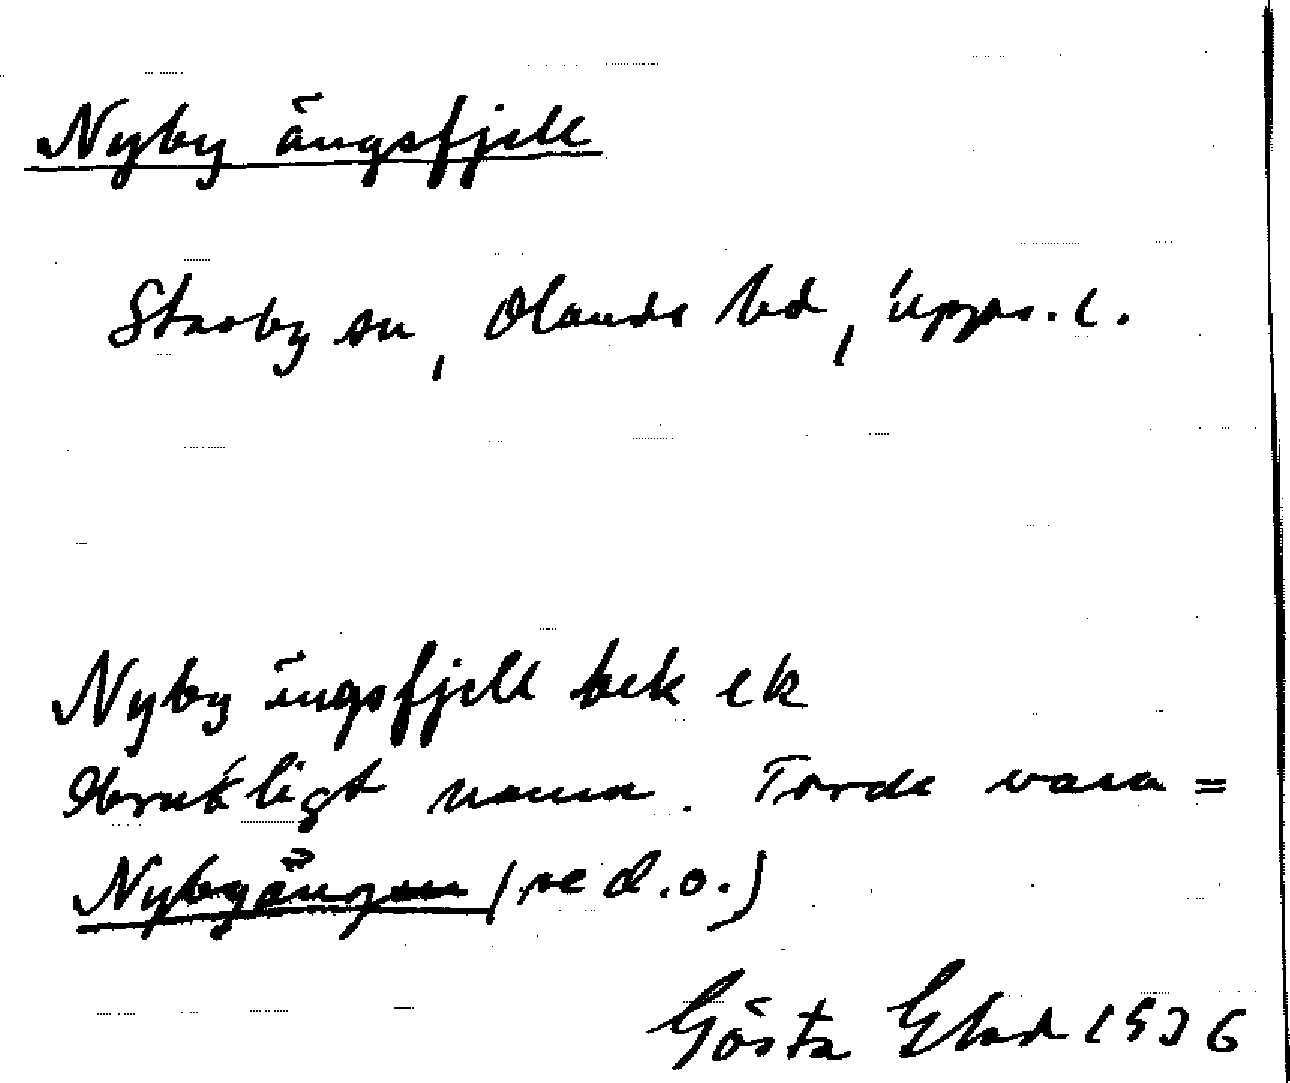 Nyby ängsfjell
Stavby sn, Olands hd, Upps. l.
Nyby ängsfjell bek ek
Obrukligt namn. Torde vara =
Nybyängen (se d.o.)
Gösta Elad 1936